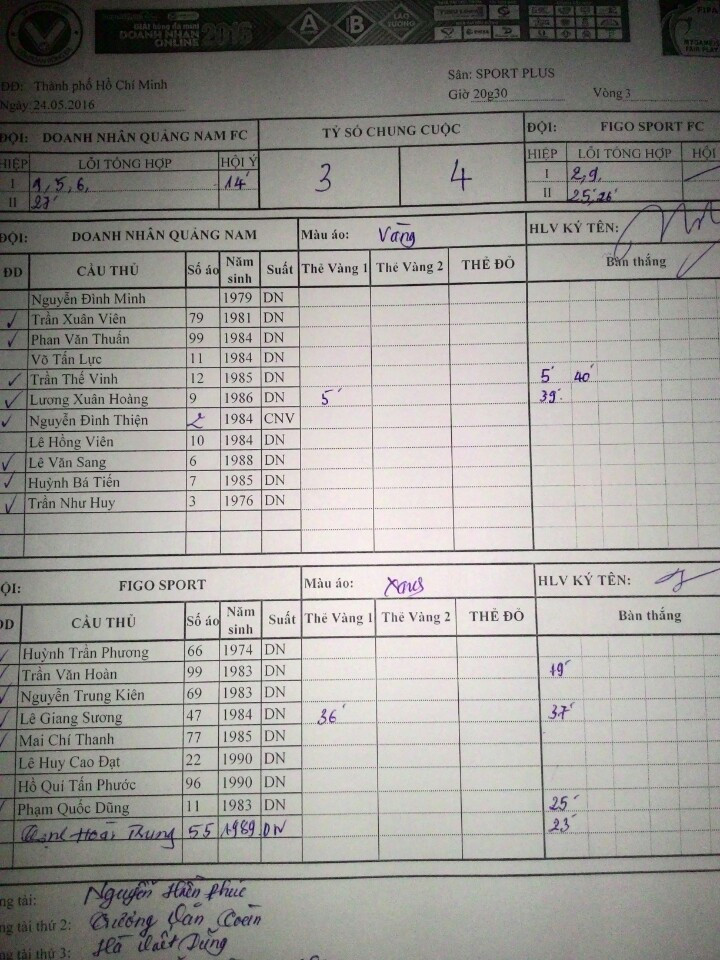 GIẢI bóng đá mini
DOANH NHÂN 2016
ONLINE
A B LAO TƯƠNG
ĐĐ: Thành phố Hồ Chí Minh Sân: SPORT PLUS
Ngày 24.05.2016 Giờ 20g30 Vòng 3
ĐỘI: DOANH NHÂN QUẢNG NAM FC TỶ SỐ CHUNG CUỘC ĐỘI: FIGO SPORT FC
HIỆP LỖI TỔNG HỢP HỘI Ý 3 4 HIỆP LỖI TỔNG HỢP HỘI
I 1, 5, 6, 14' I 2, 9,
II 27' II 25', 26'
ĐỘI: DOANH NHÂN QUẢNG NAM Màu áo: Vàng HLV KÝ TÊN:
ĐD CẦU THỦ Số áo Năm sinh Suất Thẻ Vàng 1 Thẻ Vàng 2 THẺ ĐỎ Bàn thắng
Nguyễn Đình Minh 1979 DN
✓ Trần Xuân Viên 79 1981 DN
✓ Phan Văn Thuấn 99 1984 DN
Võ Tấn Lực 11 1984 DN
✓ Trần Thế Vinh 12 1985 DN 5' 40'
✓ Lương Xuân Hoàng 9 1986 DN 5' 39'
✓ Nguyễn Đình Thiện 2 1984 CNV
Lê Hồng Viên 10 1984 DN
✓ Lê Văn Sang 6 1988 DN
✓ Huỳnh Bá Tiến 7 1985 DN
✓ Trần Như Huy 3 1976 DN
ỘI: FIGO SPORT Màu áo: Xanh HLV KÝ TÊN:
DD CẦU THỦ Số áo Năm sinh Suất Thẻ Vàng 1 Thẻ Vàng 2 THẺ ĐỎ Bàn thắng
✓ Huỳnh Trần Phương 66 1974 DN
✓ Trần Văn Hoàn 99 1983 DN 19'
✓ Nguyễn Trung Kiên 69 1983 DN
✓ Lê Giang Sương 47 1984 DN 36' 37'
✓ Mai Chí Thanh 77 1985 DN
Lê Huy Cao Đạt 22 1990 DN
Hồ Qui Tấn Phước 96 1990 DN
✓ Phạm Quốc Dũng 11 1983 DN 25'
Hoài Trung 55 1989 DN 23'
ng tài: Nguyễn Hiền Phúc
ng tài thứ 2: Trương Văn
ng tài thứ 3: Hà Việt Dũng